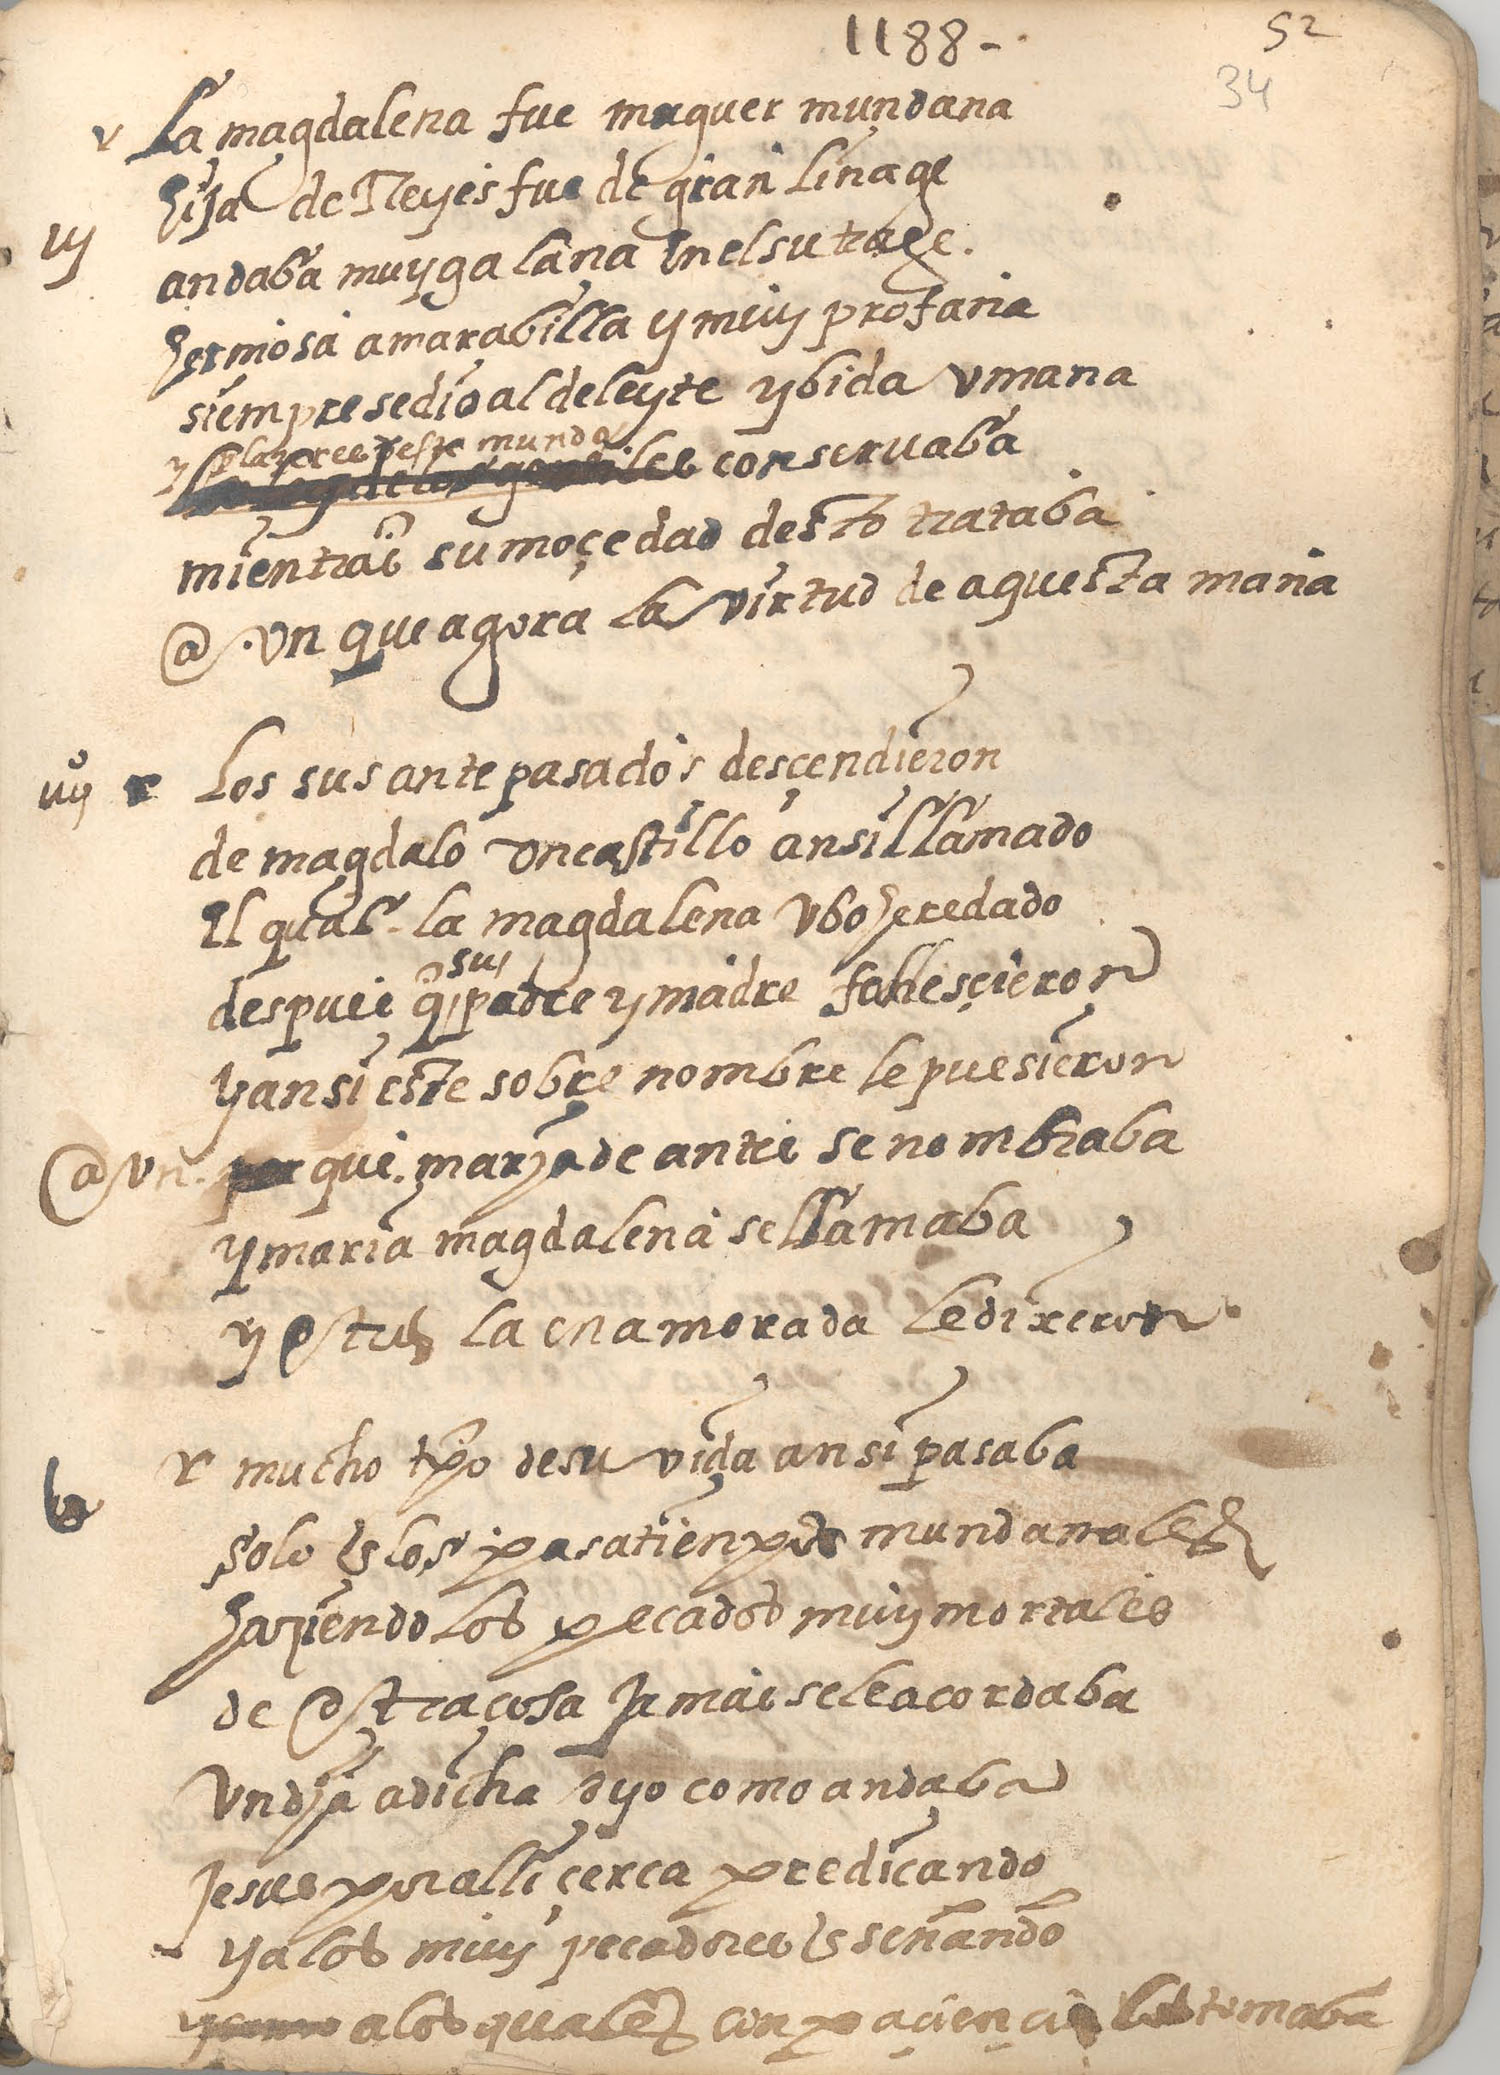 1188-
52
34
r La magdalena fue muguer mundana
hija de Reyes fue de gran linage
iij
andaba muy galana en el su trage.
hermosa a marabilla y muy profana
siempre se dio al deleyte y bida vmana
y plazeres deste mundo
la ley de los gentiles conseruaba
mientras su moçedad desto trataba
@vn que agora la virtud de aquesta mana
iiij r Los sus antepasados desçendieron
de magdalo vn castillo ansi llamado
El qual la magdalena vbo heredado
su
despues q padre y madre fallesçieron
y ansi este sobre nombre le pusieron
@vn. por que. marya de antes se nombraba
y maria magdalena se llamaba
y otros la enamorada le dixeron
b
r mucho tpo de su vida ansi pasaba
solo en los pasatienpos mundanales
haziendo los pecados muy mortales
de otra cosa jamas se le acordaba
vn dja a dicha oyo como andaba
Jesus por alli çerca predicando
y a los muy pecadores enseñando
a los quales con paçiençia los tomaba